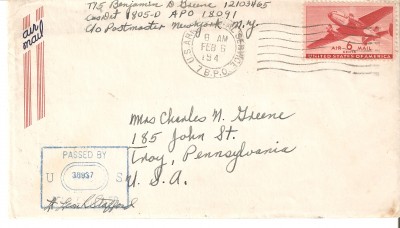 T/5 Benjamin D Greene 12103465
Cas Det 1805-D APO 18091
c/o Postmaster New York N.Y.
air
mail
U.S. ARMY
9 AM
FEB 6
194
A.P.O.
AIR 6¢ MAIL
UNITED STATES OF AMERICA
Mrs Charles N. Greene
185 John St.
Troy, Pennsylvania
U.S.A.
PASSED BY
U 38937 S